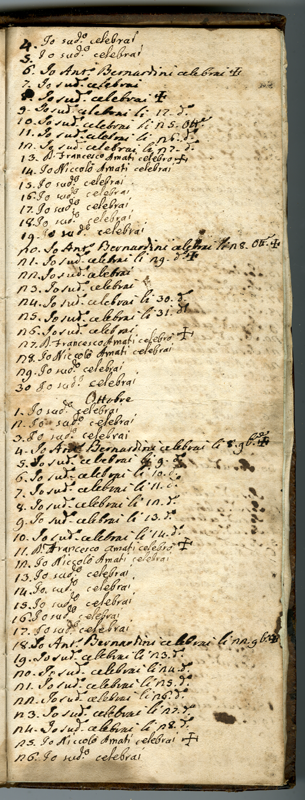 4. Io sud.º celebrai
5. Io sud.º celebrai
6. Io Ant.º Bernardini celebrai ✠
7. Io sud. celebrai
8. Io sud. celebrai ✠
9. Io sud. celebrai li 12. d.º
10. Io sud. celebrai li n5. Ott.e
11. Io sud. celebrai li n6. d.º
1n. Io sud. celebrai li n7. d.º
13. D. Francesco Amati celebrò ✠
14. Io Niccolò Amati celebrai
15. Io sud.º celebrai
16. Io sud.º celebrai
17. Io sud.º celebrai
18. Io sud.º celebrai
19. Io sud.º celebrai
n0. Io Ant.º Bernardini celebrai li n8. Ott.e ✠
n1. Io sud. celebrai li n9. d.º ✠
nn. Io sud. celebrai
n3. Io sud. celebrai
n4. Io sud. celebrai li 30. d.º
n5. Io sud. celebrai li 31. d.º
n6. Io sud. celebrai
n7. D. Francesco Amati celebrò ✠
n8. Io Niccolò Amati celebrai
n9. Io sud.º celebrai
30 Io sud.º celebrai
Ottobre
1. Io sud.º celebrai
n. Io sud.º celebrai
3. Io sud.º celebrai
4. Io Ant.º Bernardini celebrai li 8. 9b.e ✠
5. Io sud. celebrai li 9. d.º
6. Io sud. celebrai li 10. d.º
7. Io sud. celebrai li 11. d.º
8. Io sud. celebrai li 1n. d.º
9. Io sud. celebrai li 13. d.º
10. Io sud. celebrai li 14. d.º
11. D. Francesco Amati celebrò ✠
1n. Io Niccolò Amati celebrai
13. Io sud.º celebrai
14. Io sud.º celebrai
15. Io sud.º celebrai
16. Io sud.º celebrai
17. Io sud.º celebrai
18. Io Ant.º Bernardini celebrai li nn. 9b.e ✠
19. Io sud. celebrai li n3. d.º
n0. Io sud. celebrai li n4. d.º
n1. Io sud. celebrai li n5. d.º
nn. Io sud. celebrai li n6. d.º
n3. Io sud. celebrai li n7. d.º
n4. Io sud. celebrai li n8. d.º
n5. Io Niccolò Amati celebrai ✠
n6. Io sud.º celebrai